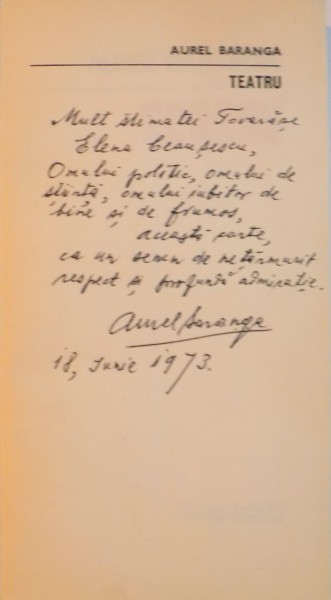 AUREL BARANGA
TEATRU
Mult stimatei Tovarășe
Elena Ceaușescu,
Omului politic, omului de
știință, omului iubitor de
bine și de frumos,
această carte,
ca un semn de nețărmurit
respect și profundă admirație.
Aurel Baranga
18, Iunie 1973.